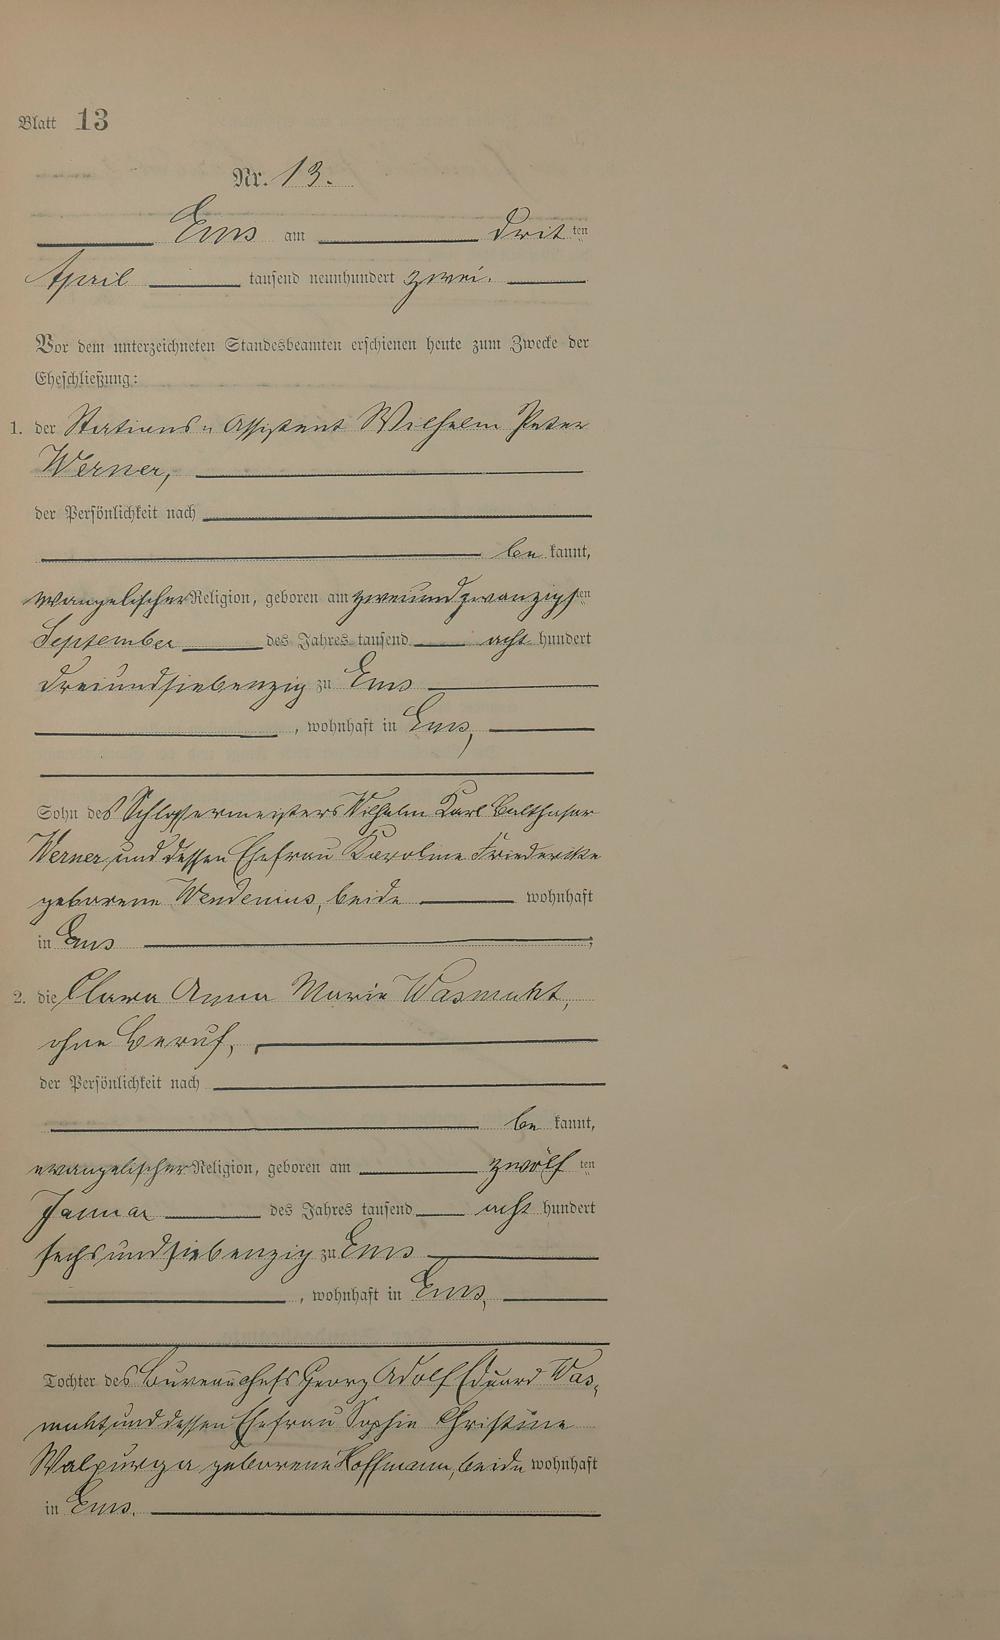 Blatt 13
Nr. 13.
Ems am dritten
April tausend neunhundert zwei.
Vor dem unterzeichneten Standesbeamten erschienen heute zum Zwecke der
Eheschließung:
1. der Stations-Assistent Wilhelm Peter
Werner,
der Persönlichkeit nach
be kannt,
evangelischer Religion, geboren am zweiundzwanzigsten
September des Jahres tausend acht hundert
dreiundsiebenzig zu Ems
, wohnhaft in Ems,
Sohn des Schlossermeisters Wilhelm Karl Balthasar
Werner und dessen Ehefrau Karoline Friederike
geborene Wendenius, beide wohnhaft
in Ems ;
2. die Clara Anna Marie Wasmuht,
ohne Beruf,
der Persönlichkeit nach
be kannt,
evangelischer Religion, geboren am zwölf ten
Januar des Jahres tausend acht hundert
sechsundsiebenzig zu Ems
, wohnhaft in Ems,
Tochter des Bureauchefs Georg Adolf Eduard Was-
muht und dessen Ehefrau Sophie Christine
Walpurga geborene Hoffmann, beide wohnhaft
in Ems.